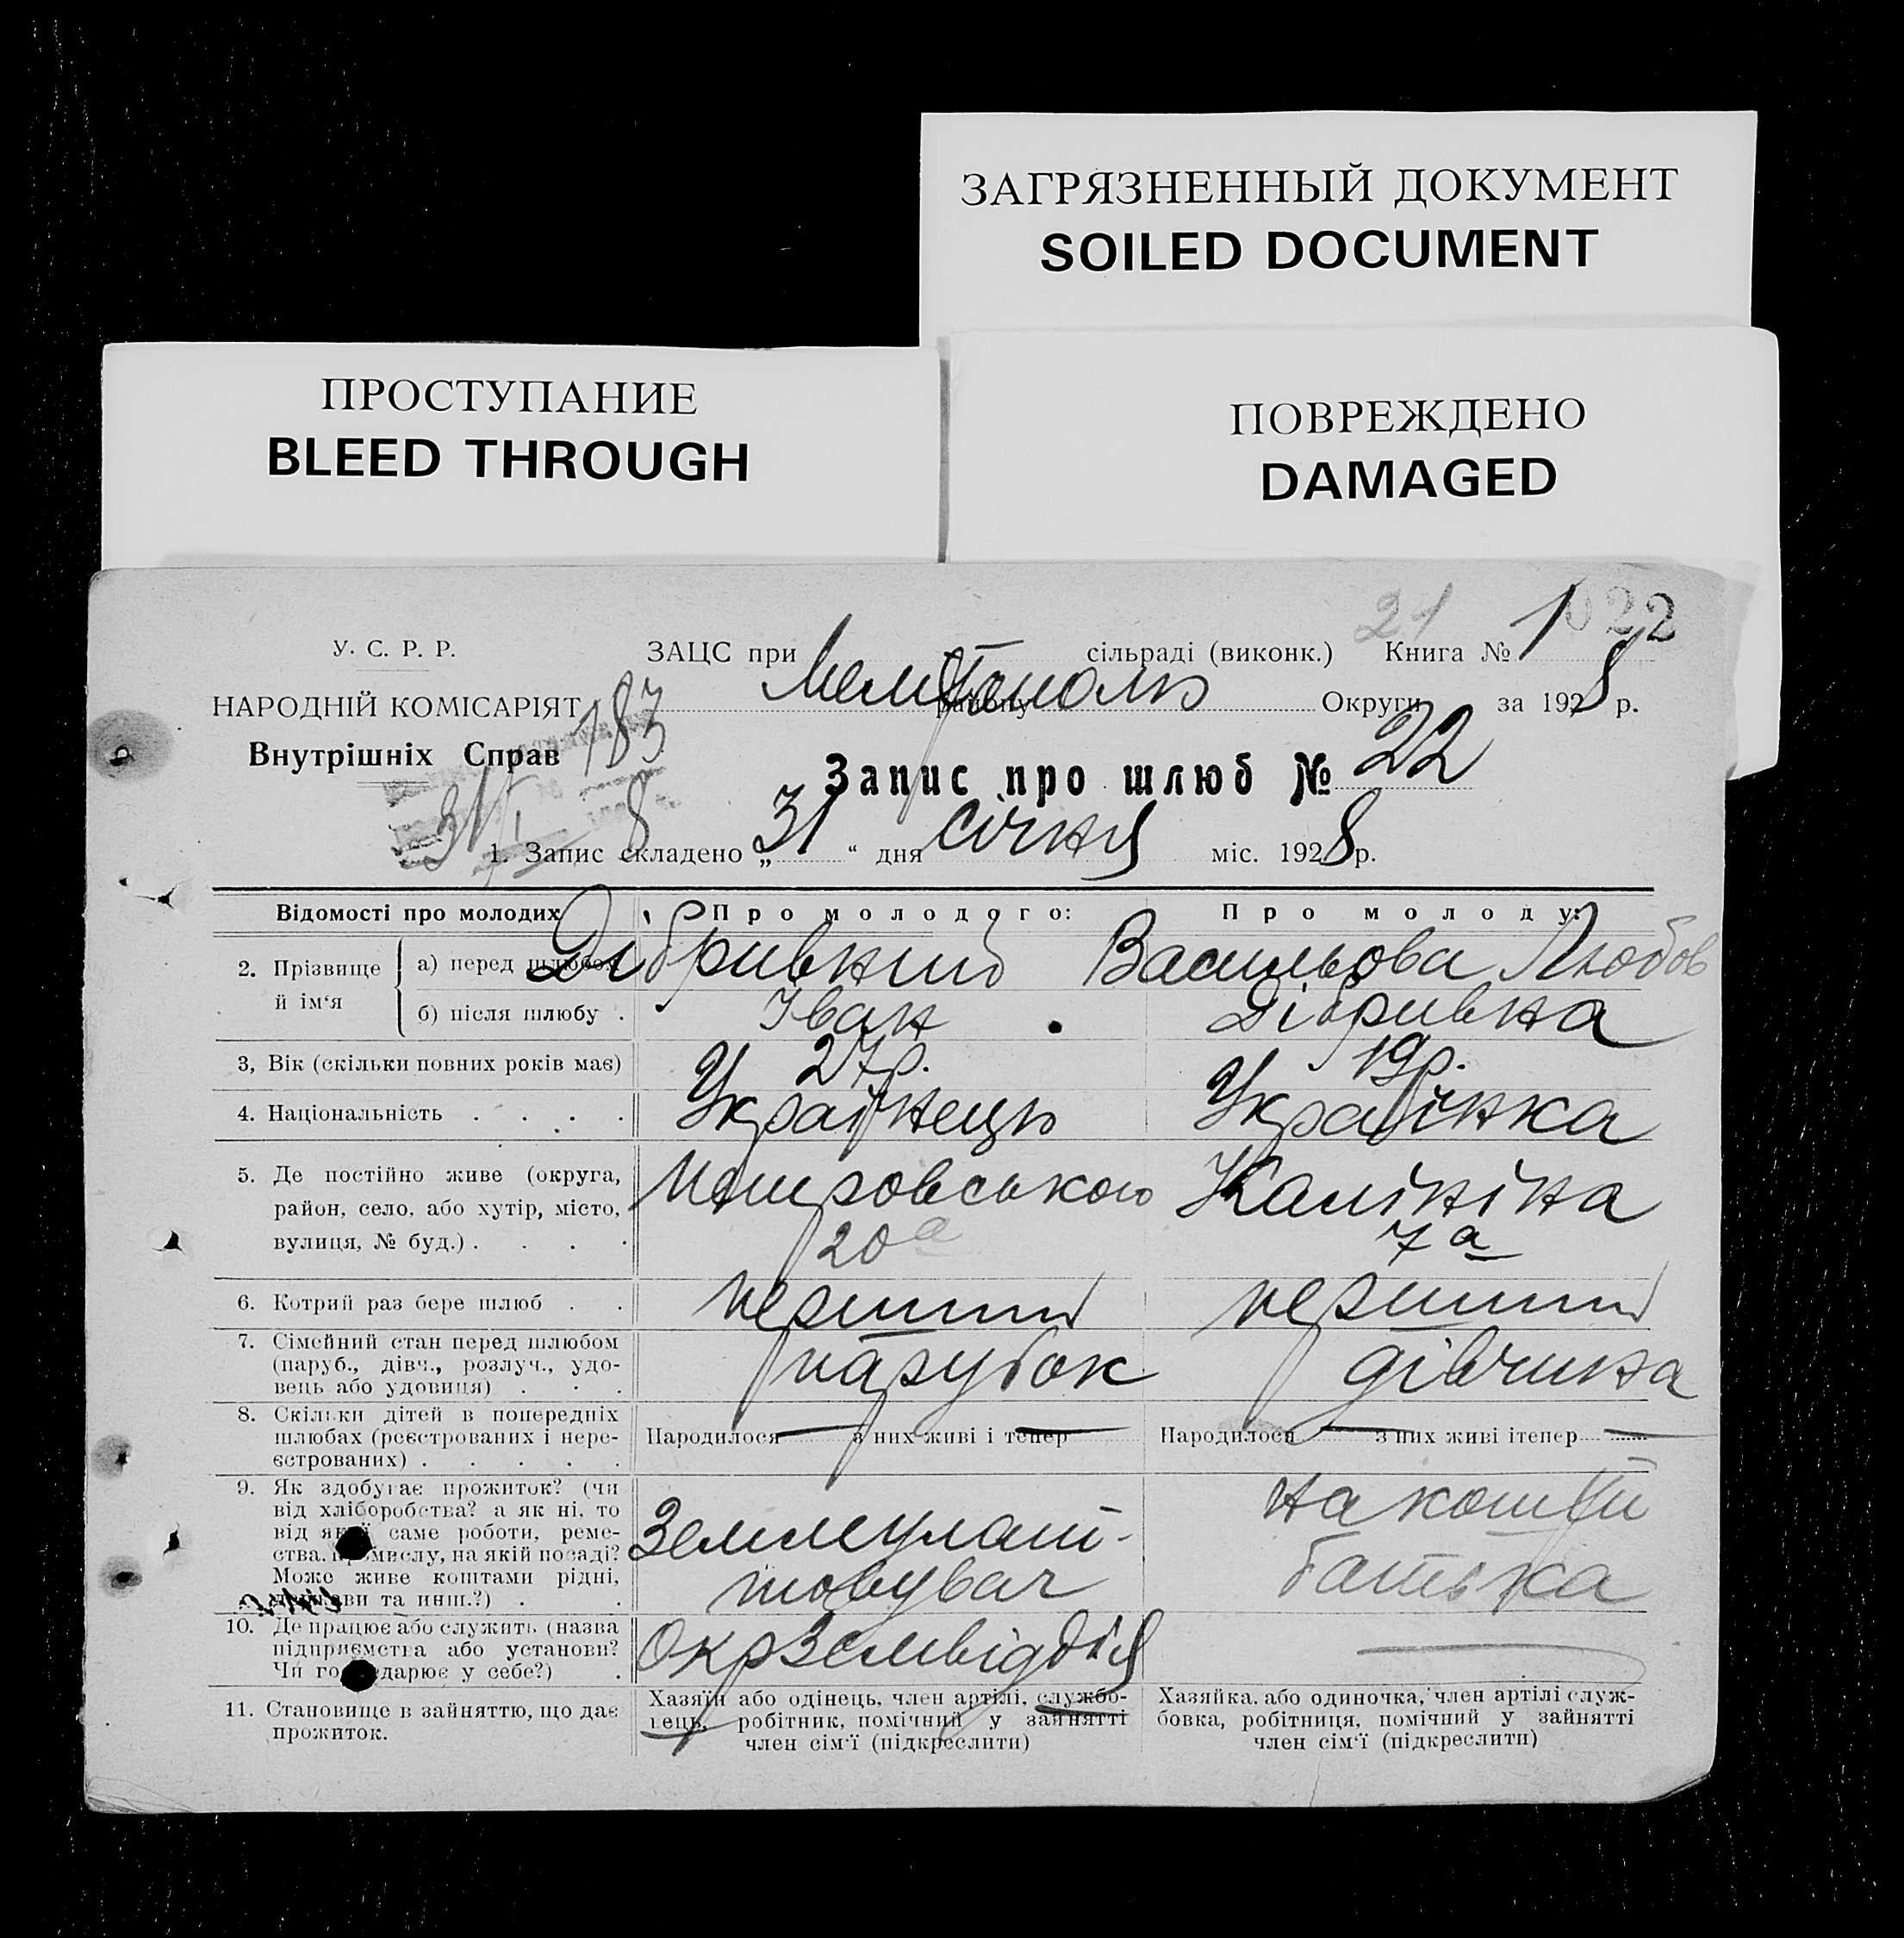 ЗАГРЯЗНЕННЫЙ ДОКУМЕНТ
SOILED DOCUMENT
ПРОСТУПАНИЕ
BLEED THROUGH
ПОВРЕЖДЕНО
DAMAGED
21
022
У. С. Р. Р.
ЗАЦС при сільраді (виконк.) Книга № 1
НАРОДНІЙ КОМІСАРІЯТ
Мелітополь району Округи за 1928 р.
Внутрішніх Справ
183
Запис про шлюб № 22
31/I 8
1. Запис складено „31“ дня січня міс. 1928 р.
Відомості про молодих
Про молодого:
Про молоду:
2. Прізвище й ім‘я
а) перед шлюбом
Дібривний
Васильова Любов
б) після шлюбу .
Іван
Дібривна
3, Вік (скільки повних років має)
27р.
19р.
4. Національність . . . .
Українець
Українка
5. Де постійно живе (округа,
район, село, або хутір, місто,
вулиця, № буд.) . . . .
Петровського
20а
Калініна
7а
6. Котрий раз бере шлюб . .
перший
перший
7. Сімейний стан перед шлюбом
(паруб., дівч., розлуч., удо-
вець або удовиця) . . .
парубок
дівчина
8. Скільки дітей в попередніх
шлюбах (реєстрованих і нере-
єстрованих) . . . . .
Народилося — з них живі і тепер —
Народилося — з них живі ітепер —
9. Як здобуває прожиток? (чи
від хліборобства? а як ні, то
від якої саме роботи, реме-
ства, промислу, на якій посаді?
Може живе коштами рідні,
держави та инш.?) . .
Землеулаш-
товувач
На кошти
батька
10. Де працює або служить (назва
підприємства або установи?
Чи господарює у себе?) .
Окрземвідділ
—
11. Становище в зайняттю, що дає
прожиток.
Хазяїн або одінець, член артілі, службо-
вець, робітник, помічний у зайнятті
член сім‘ї (підкреслити)
Хазяйка, або одиночка, член артілі служ-
бовка, робітниця, помічний у зайнятті
член сім‘ї (підкреслити)